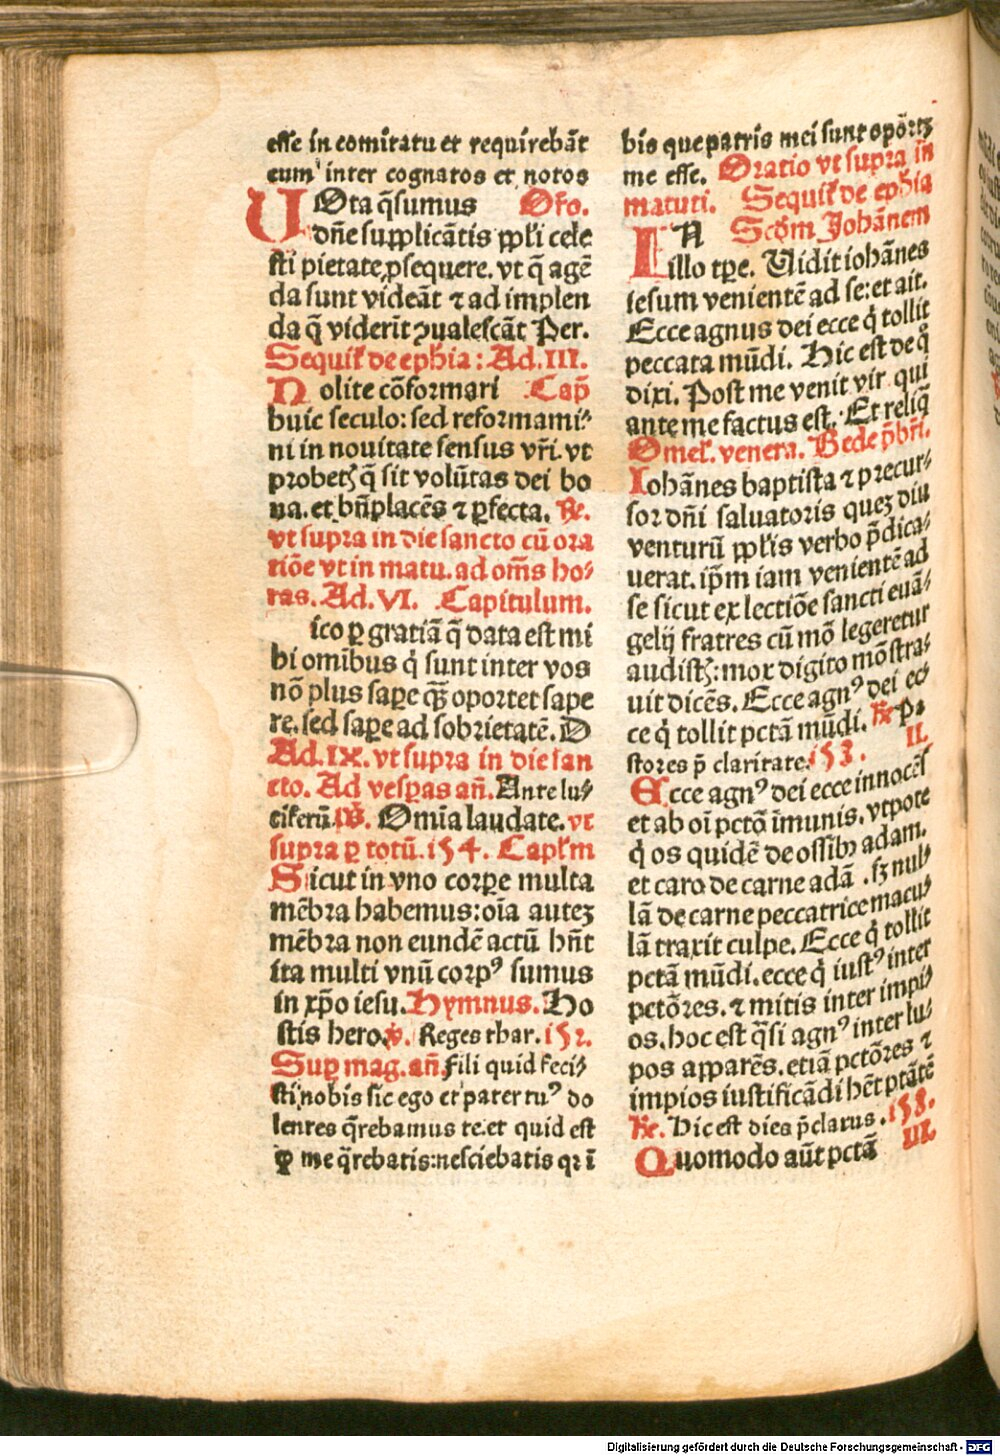 esse in comitatu et requirebāt
eum inter cognatos et notos
UOta q̄sumus Oīo.
dn̄e supplicātis ppl̄i cele
sti pietate ꝓsequere. vt q̄ agē
da sunt videāt ⁊ ad implen
da q̄ viderīt ꝯualescāt Per.
Sequīt̄ de eph̄ia: Ad.III.
Nolite cōformari Cap̄
huic seculo: sed reformami⸗
ni in nouitate sensus vr̄i. vt
probetꝭ q̄ sit volūtas dei bo
na. et bn̄placēs ⁊ ꝑfecta. R̄e.
vt supra in die sancto cū ora
tiōe vt in matu. ad om̄s ho⸗
ras. Ad. VI. Capitulum.
ico ꝑ gratiā q̄ data est mi
hi omībus q̇ sunt inter vos
nō plus saꝑe qꝫ̄ oportet sape
re. sed saꝑe ad sobrietatē. D
Ad.IX. vt supra in die san
cto. Ad vesꝑas an̄. Ante lu⸗
ciferū. p̄s. Om̄ia laudate. vt
supra ꝑ totū. 154. Capl̄m
Sicut in vno corꝑe multa
mēbra habemus: oīa autez
mēbra non eundē actū hn̄t
ita multi vnū corpꝰ sumus
in xp̄o iesu. Hymnus. Ho
stis hero. v̄. Reges thar. 152.
Suꝑ mag. an̄. Fili quid feci⸗
sti nobis sic ego et pater tuꝰ do
lentes q̄rebamus te. et quid est
ꝙ me q̄rebatis: nesciebatis qꝛ ī
his que patris mei sunt opōrtꝫ
me esse. Oratio vt supra in
matuti. Sequīt̄ de eph̄ia
Scḋm Johānem
IN
illo tꝑe. Vidit iohānes
iesum venientē ad se: et ait.
Ecce agnus dei ecce q̇ tollit
peccata mūdi. Hic est de q̊
dixi. Post me venit vir qui
ante me factus est. Et reliq̄
Omel̄. venera. Bede p̄br̄i.
Iohānes baptista ⁊ precur⸗
sor dn̄i saluatoris quez diu
venturū ppl̄is verbo p̄dica⸗
uerat. ip̄m iam venientē ad
se sicut ex lectiōe sancti euā⸗
gelij fratres cū mō legeretur
audistꝭ: mox digito mōstra⸗
uit dicēs. Ecce agnꝰ dei ec⸗
ce q̇ tollit pctā mūdi. R̄e Pa
stores p̄ claritate. 153. II.
Ecce agnꝰ dei ecce innocēs
et ab oī pctō īmunis. vtpote
q̇ os quidē de ossibꝰ adam.
et caro de carne adā. sꝫ nul⸗
lā de carne peccatrice macu⸗
lā traxit culpe. Ecce q̇ tollit
pctā mūdi. ecce q̇ iustꝰ inter
pctōres. ⁊ mitis inter impi⸗
os. hoc est q̄si agnꝰ inter lu⸗
pos apparēs. etiā pctōres ⁊
impios iustificādi hēt ptātē
R̄e. Hic est dies p̄clarus. 158.
Quomodo aūt pctā III.
Digitalisierung gefördert durch die Deutsche Forschungsgemeinschaft - DFG